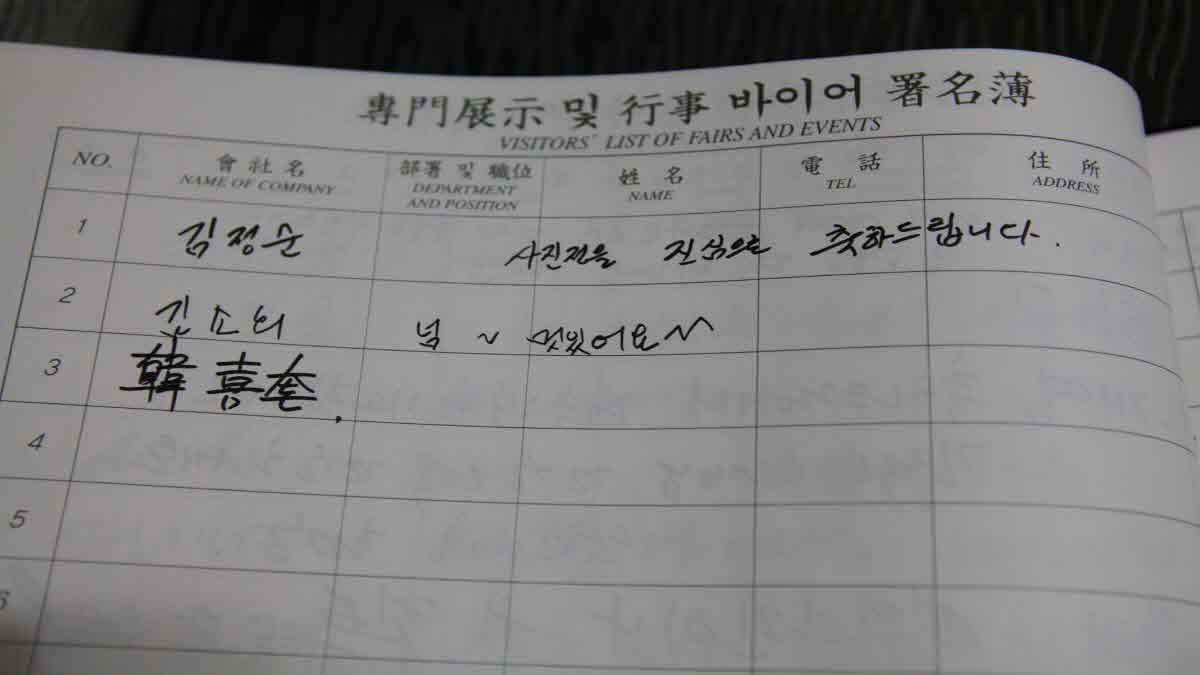 專門展示 및 行事 바이어 署名薄
VISITORS' LIST OF FAIRS AND EVENTS
NO. 會社名 部署 및 職位 姓名 電話 住所
NAME OF COMPANY DEPARTMENT AND POSITION NAME TEL ADDRESS
1 김정순 사진전을 진심으로 축하드립니다.
2 님 ~ 멋있어요~
3 韓喜
4
5
6